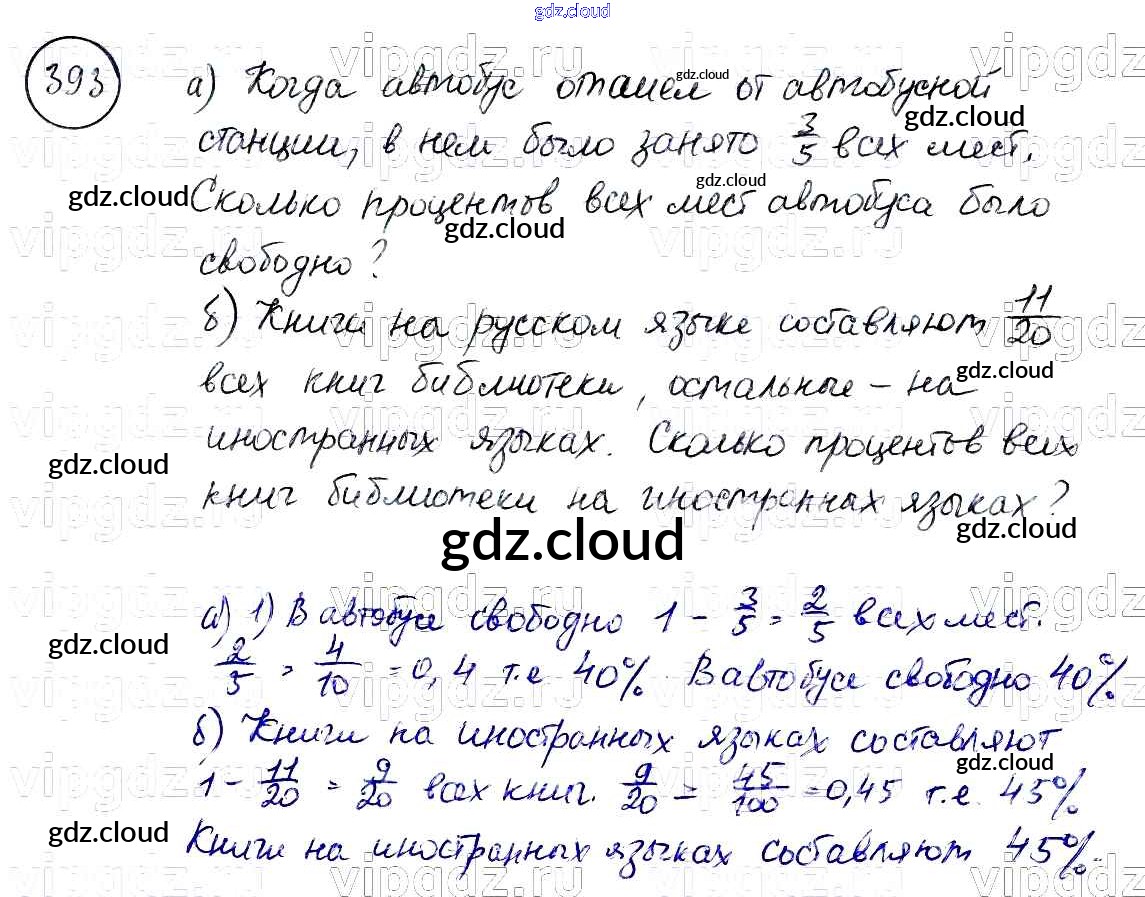 gdz.cloud
393
а) Когда автобус отошел от автобусной
станции, в нем было занято 3/5 всех мест.
Сколько процентов всех мест автобуса было
свободно?
б) Книги на русском языке составляют 11/20
всех книг библиотеки, остальные - на
иностранных языках. Сколько процентов всех
книг библиотеки на иностранных языках?
gdz.cloud
а) 1) В автобусе свободно 1 - 3/5 = 2/5 всех мест.
2/5 = 4/10 = 0,4 т.е 40%. В автобусе свободно 40%
б) Книги на иностранных языках составляют
1 - 11/20 = 9/20 всех книг. 9/20 = 45/100 = 0,45 т.е. 45%
Книги на иностранных языках составляют 45%.